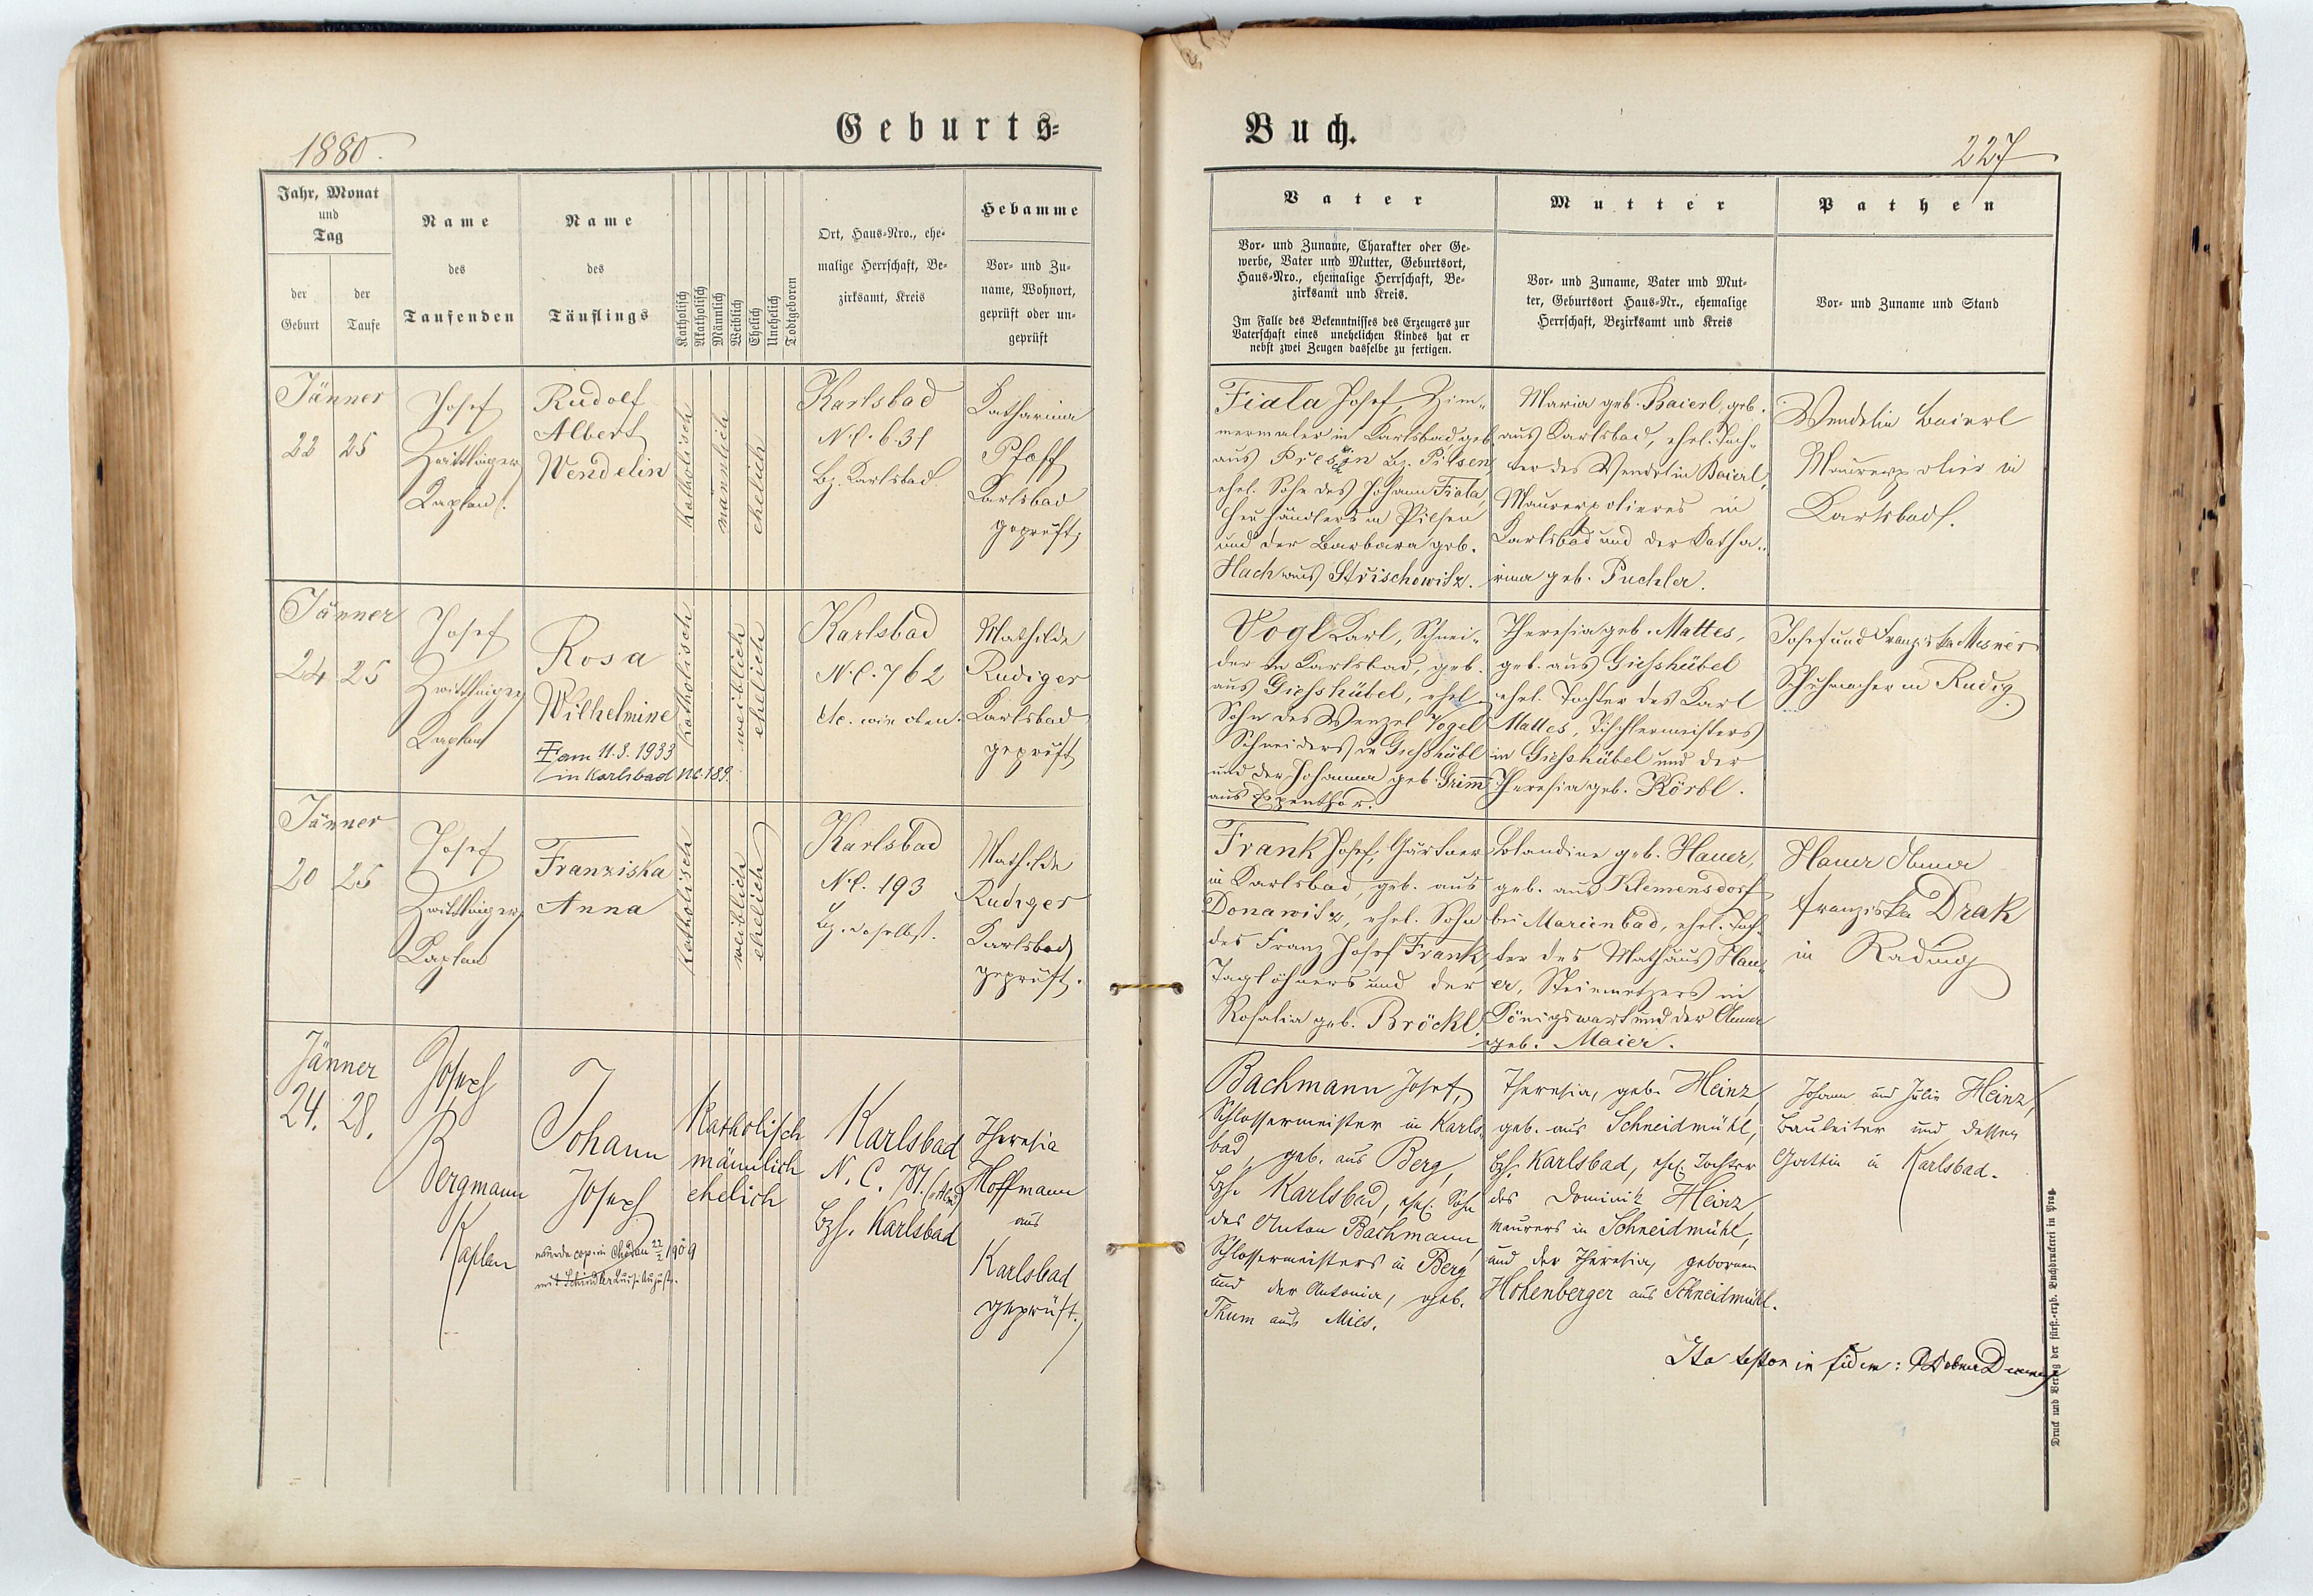 1880.
Geburts-
Jahr, Monat
und
Tag
der
Geburt
der
Taufe
Name
des
Taufenden
Name
des
Täuflings
Katholisch
Akatholisch
Männlich
Weiblich
Ehelich
Unehelich
Todtgeboren
Ort, Haus-Nro., ehe-
malige Herrschaft, Be-
zirksamt, Kreis
Hebamme
Vor- und Zu-
name, Wohnort,
geprüft oder un-
geprüft
Jänner
22 25
Josef
Zwittlinger
Kaplan.
Rudolf
Albert
Wendelin
katholisch
männlich
ehelich
Karlsbad
N.C. 631
Bz. Karlsbad
Katharina
Pfaff
Karlsbad
geprüft
Jänner
24 25
Josef
Zwittlinger
Kaplan
Rosa
Wilhelmine
am 11.3.1933
in Karlsbad NC.189.
katholisch
weiblich
ehelich
Karlsbad
N.C. 762
etc. wie oben.
Mathilde
Rudiger
Karlsbad
geprüft
Jänner
20 25
Josef
Zwittlinger
Kaplan
Franziska
Anna
katholisch
weiblich
ehelich
Karlsbad
N.C. 193
Bz. daselbst.
Mathilde
Rudiger
Karlsbad
geprüft.
Jänner
24. 28.
Josef
Bergmann
Kaplan
Johann
Josef
wurde cop. in Chodau 22/2 1909
mit Schindler
Katholisch
männlich
ehelich
Karlsbad
N. C.
Bzh. Karlsbad
Theresia
Hoffmann
aus
Karlsbad
geprüft.
Buch.
227
Vater
Vor- und Zuname, Charakter oder Ge-
werbe, Vater und Mutter, Geburtsort,
Haus-Nro., ehemalige Herrschaft, Be-
zirksamt und Kreis.
Im Falle des Bekenntnisses des Erzeugers zur
Vaterschaft eines unehelichen Kindes hat er
nebst zwei Zeugen dasselbe zu fertigen.
Mutter
Vor- und Zuname, Vater und Mut-
ter, Geburtsort Haus-Nr., ehemalige
Herrschaft, Bezirksamt und Kreis
Pathen
Vor- und Zuname und Stand
Fiala Josef, Zim-
mermaler in Karlsbad geb.
aus Bz. Pilsen,
ehel. Sohn des Johann Fiala,
händlers in Pilsen
und der Barbara geb.
Hach aus Strischowitz.
Maria geb. Baierl, geb.
aus Karlsbad, ehel. Toch-
ter des Wendelin Baierl,
Maurerpolieres in
Karlsbad und der Katha-
rina geb. Puchler.
Wendelin Baierl
Maurerpolier in
Karlsbad.
Vogl Karl, Schnei-
der in Karlsbad, geb.
aus Giesshübel, ehel.
Sohn des Wenzel Vogel
Schneiders in Giesshübl
und der Johanna geb. Grimm
aus Espenthor.
Theresia geb. Mattes,
geb. aus Giesshübel
ehel. Tochter des Karl
Mattes, Tischlermeisters
in Giesshübel und der
Theresia geb. Körbl.
Josef und Franziska Mesner
Schuhmacher in Rudig.
Frank Josef, Gärtner
in Karlsbad, geb. aus
Donawitz, ehel. Sohn
des Franz Josef Frank,
Taglöhners und der
Rosalia geb. Bröckl.
Blandine geb. Hauer,
geb. aus Klemensdorf
bei Marienbad, ehel. Toch-
ter des Mathäus Hau-
er, Steinmetzers in
Königswart und der Anna
geb. Maier.
Hauer Anna
Franziska Drak
in Rading
Bachmann Josef,
Schlossermeister in Karls-
bad, geb. aus Berg,
Bzh. Karlsbad, ehel. Sohn
des Anton Bachmann,
Schlossermeisters in Berg
und der Antonia, geb.
Thum aus Mies.
Theresia, geb. Heinz,
geb. aus Schneidmühl,
Bzh. Karlsbad, ehel. Tochter
des Dominik Heinz,
Maurers in Schneidmühl,
und der Theresia, gebornen
Hohenberger aus Schneidmühl.
Johann und Julie Heinz,
Bauleiter und dessen
Gattin in Karlsbad.
Ita testor in fidem:
Druck und Verlag der fürst.-erzb. Buchdruckerei in Prag.